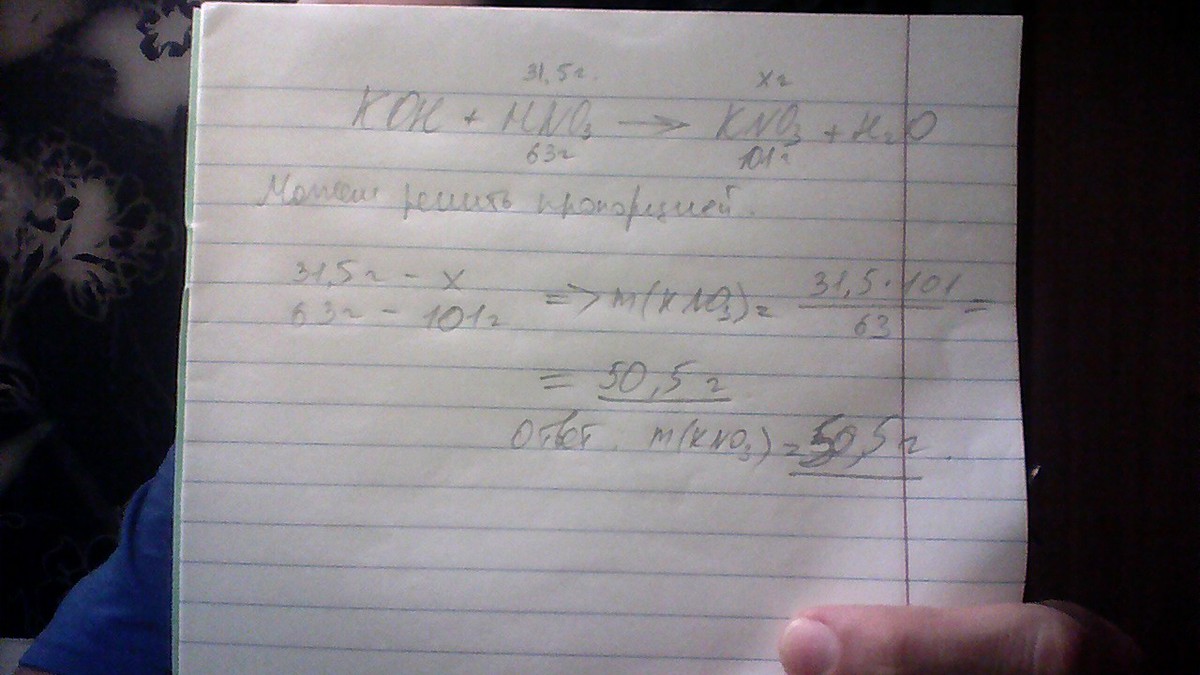 31,5г. xг
KOH + HNO₃ → KNO₃ + H₂O
63г 101г
Можем решить пропорцией.
31,5г - x
63г - 101г => m(KNO₃) = 31,5·101/63 =
= 50,5г
Ответ. m(KNO₃) = 50,5г.